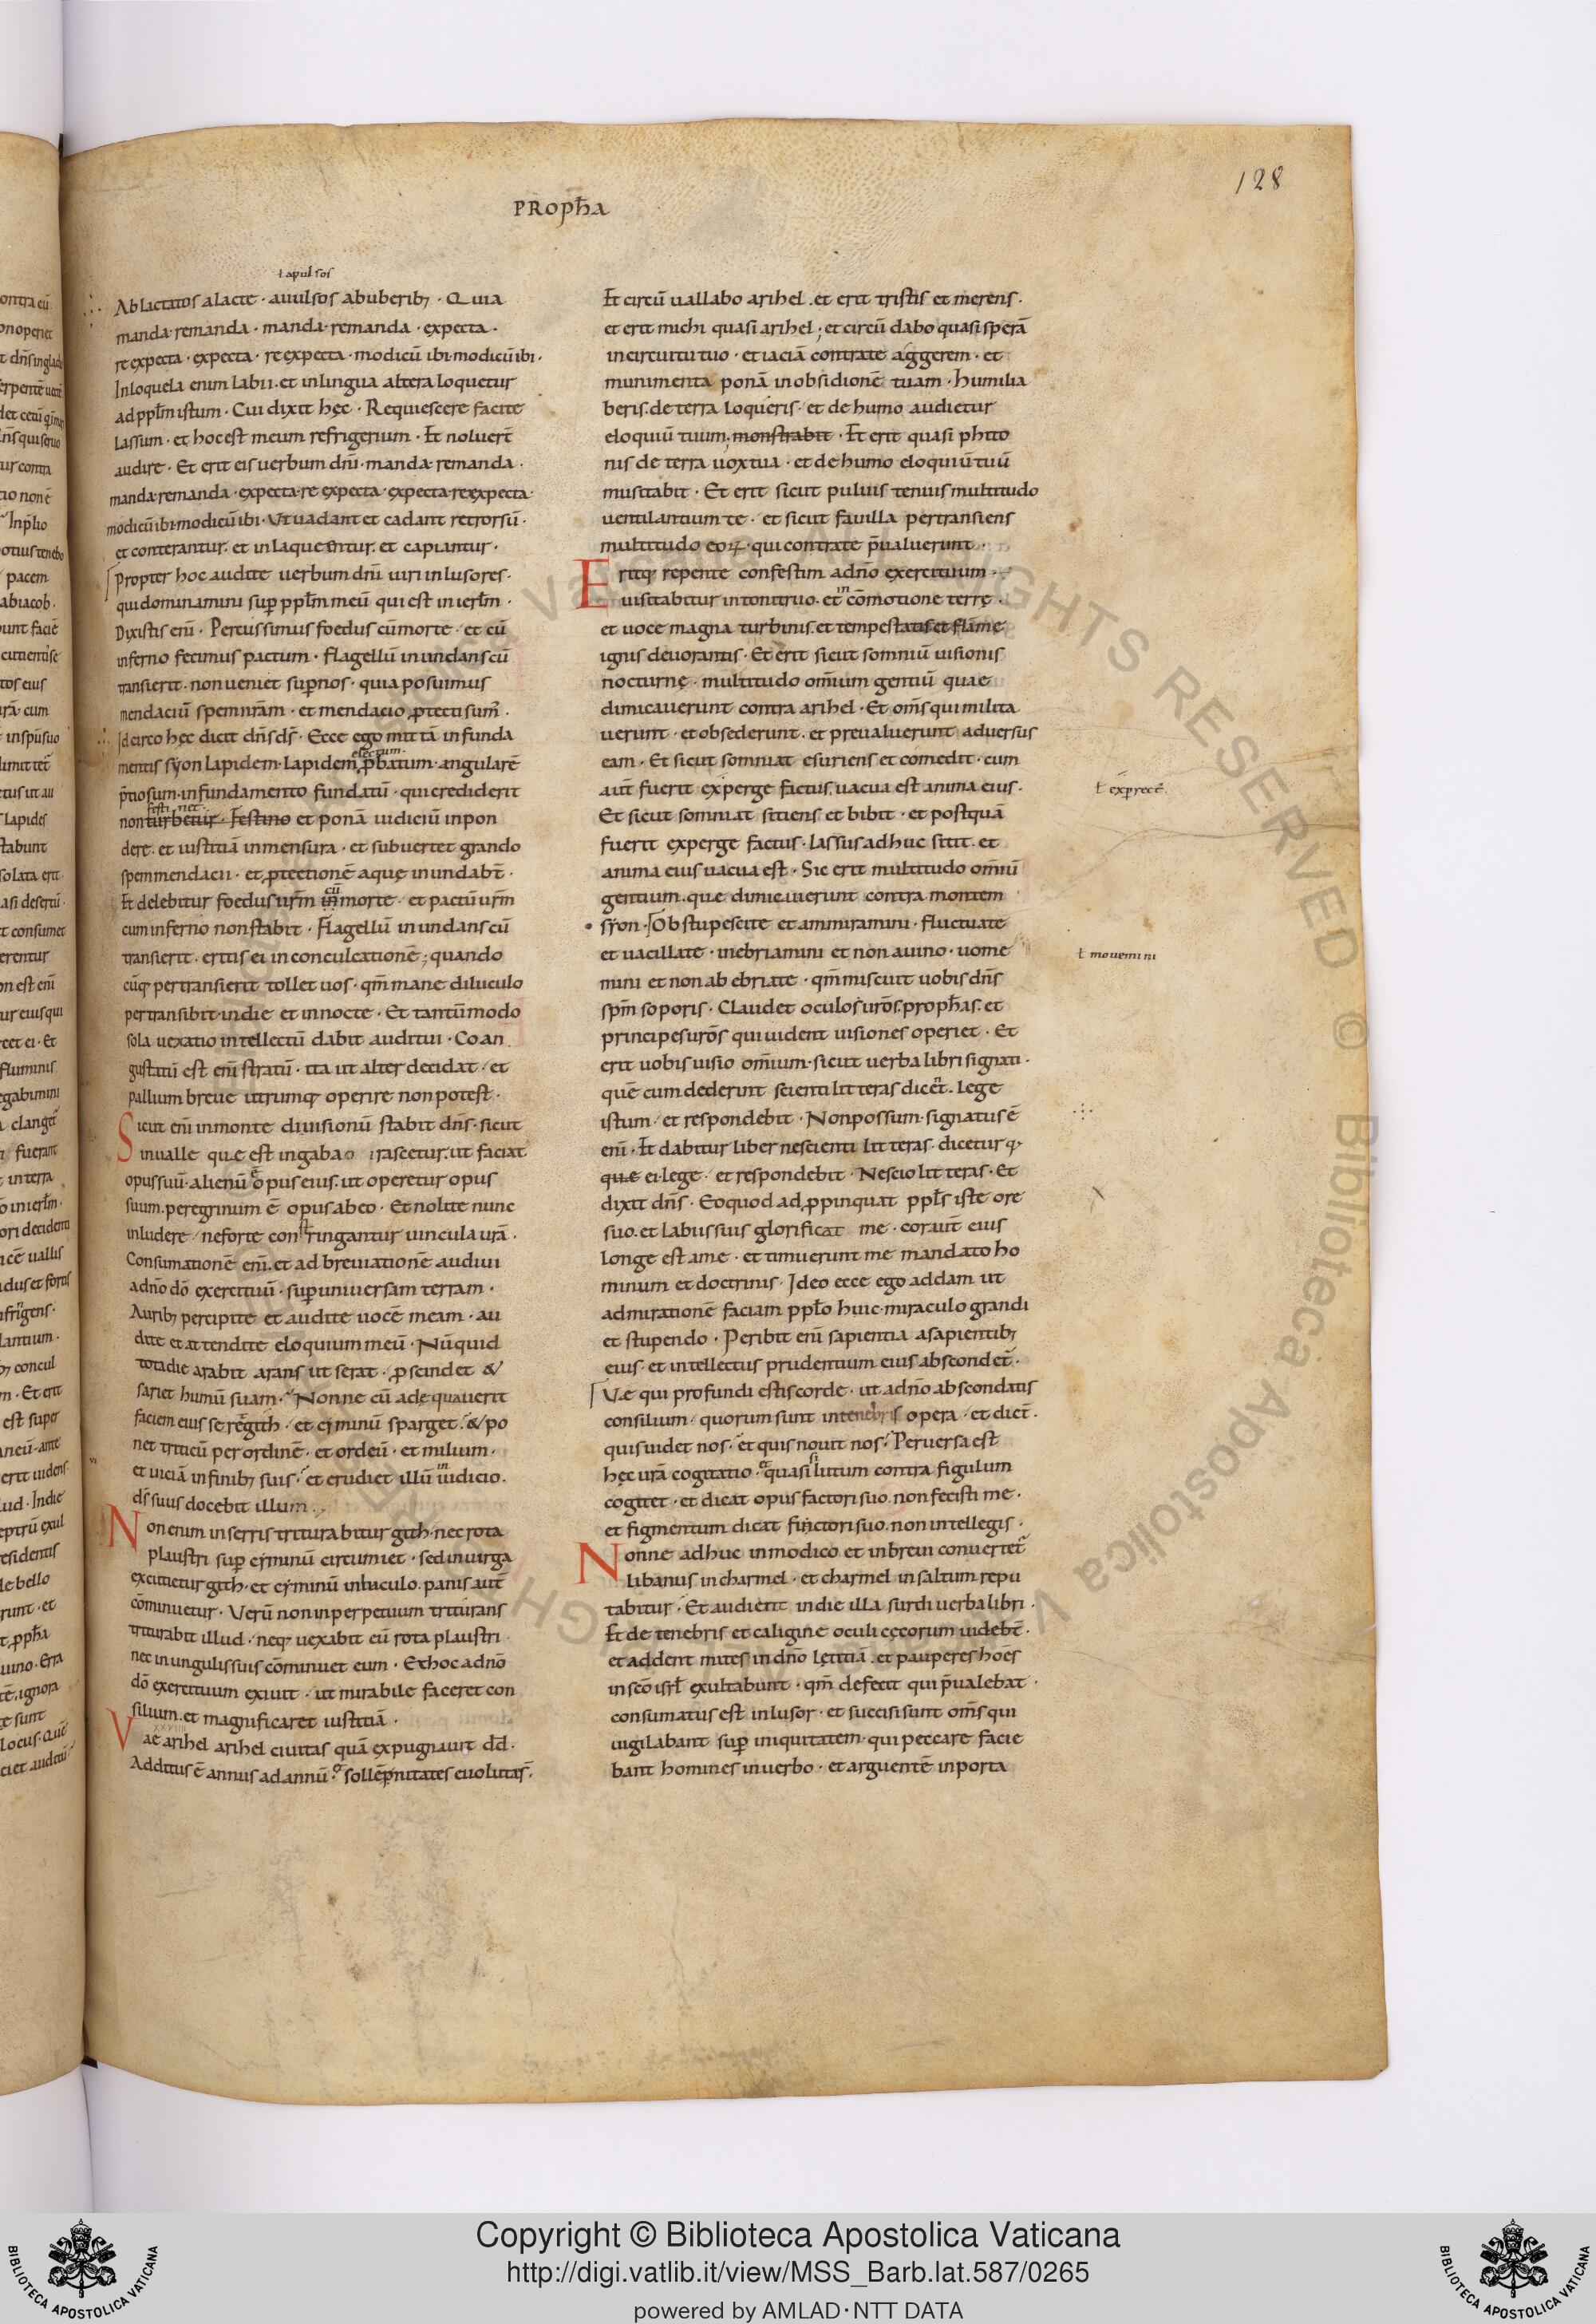 128
PROPħA
ł apulsos
Ablactatos alacte · auulsos abuberibꝫ · Quia
manda·remanda · manda·remanda · expecta ·
reexpecta · expecta · reexpecta · modicū ibi·modicū ibi ·
Inloquela enim labii·et inlingua altera loquetur
ad pplm̄ istum · Cui dixit hęc · Requiescere facite
lassum · et hoc est meum refrigerium · Et noluer̄t
audire · Et erit eis uerbum dn̄i·manda·remanda ·
manda·remanda·expecta·reexpecta·expecta·reexpecta·
modicū ibi·modicū ibi·Vt uadant et cadant retrorsū·
et conterantur·et inlaqueentur·et capiantur·
Propter hoc audite uerbum dn̄i uiri inlusores·
qui dominamini sup̄ pplm̄ meū qui est in ierl̄m·
Dixistis eni̅· Percussimus foedus cū morte · et cū
inferno fecimus pactum · Flagellū inundans cū
transierit·non ueniet sup̄nos·quia posuimus
mendaciū spem nr̄am · et mendacio ꝓtecti sum᷒·
Idcirco hęc dicit dn̄s ds̄ · Ecce ego mittā infunda
electum·
mentis sẏon lapidem·lapidem p̄batum·angularē
p̄tiosum·infundamento fundatū · qui crediderit
festinet·
non turbetur · Festino et ponā iudiciū inpon
dere·et iustitiā inmensura · et subuertet grando
spem mendacii · et ꝓtectionē aquę inundab̄t ·
cū
Et delebitur foedus ur̄m in morte · et pactū ur̄m
cum inferno non stabit · Flagellū inundans cū
transierit · eritis ei in conculcationē ; quando
cūqꝫ pertransierit tollet uos · qm̄ mane diluculo
pertransibit·indie et innocte · Et tantūmodo
sola uexatio intellectū dabit auditui · Coan
gustatū est eni̅ stratū · ita ut alter decidat · et
pallium breue utrumqꝫ operire non potest ·
Sicut eni̅ inmonte diuisionū stabit dn̄s·sicut
inualle quę est ingabao irascetur·ut faciat
opus suū·alienū opus eius·ut operetur opus
suum·peregrinum ē opus ab eo · Et nolite nunc
inludere · neforte constringantur uincula ur̄a ·
Consumationē eni̅·et adbreuiationē audiui
adn̄o dō exercituū · sup̄ uniuersam terram ·
Auribꝫ percipite et audite uocē meam · au
dite et attendite eloquium meū · Nūquid
tota die arabit arans ut serat · ꝓscindet &
sariet humū suam · Nonne cū adęquauerit
faciem eius seret gith · et cẏminū sparget · & po
net triticū per ordinē · et ordeū · et milium ·
et uiciā infinibꝫ suis · et erudiet illū in iudicio ·
ds̄ suus docebit illum ·
Non enim in serris triturabitur gith·nec rota
plaustri sup̄ cẏminū circumiet · sed inuirga
excutietur gith·et cẏminū inbaculo·panis aut̄
cōminuetur · Verū non inperpetuum triturans
triturabit illud · neqꝫ uexabit eū rota plaustri ·
nec inungulis suis cōminuet eum · Et hoc adn̄o
dō exercituum exiuit · ut mirabile faceret con
silium·et magnificaret iustitiā ·
Vae arihel arihel ciuitas quā expugnauit dd̄ ·
Additus ē annus ad annū · sollēpnitates euolutas̄·
Et circū uallabo arihel·et erit tristis et merens·
et erit michi quasi arihel ; et circū dabo quasi sperā
incircuitu tuo · et iaciā contra te aggerem · et
munimenta ponā inobsidionē tuam · Humilia
beris·de terra loqueris · et de humo audietur
eloquiū tuum·monstrabit · Et erit quasi phito
nis de terra uox tua · et de humo eloquiū tuū
musitabit · Et erit sicut puluis tenuis multitudo
uentilantium te · et sicut fauilla pertransiens
multitudo eoꝝ · qui contra te p̄ualuerunt ·
Eritqꝫ repente confestim adn̄o exercituum ·
uisitabitur intonitruo·et in cōmotione terrę ·
et uoce magna turbinis·et tempestatis et flāmę
ignis deuorantis · Et erit sicut somniū uisionis
nocturnę · multitudo om̄ium gentiū quae
dimicauerunt contra arihel · Et om̄s qui milita
uerunt · et obsederunt·et preualuerunt aduersus
eam · Et sicut somniat esuriens et comedit · cum
aut̄ fuerit experge factus·uacua est anima eius ·
ł exp̄rect̄·
Et sicut somniat sitiens et bibit · et postquā
fuerit experge factus · lassus adhuc sitit·et
anima eius uacua est · Sic erit multitudo om̄iū
gentium·que dimicauerunt contra montem
sẏon · Obstupescite et ammiramini · fluctuate
et uacillate · inebriamini et non auino · uome
ł mouemini
mini et non ab ebriate · qm̄ miscuit uobis dn̄s
spm̄ soporis · Claudet oculos ur̄os·prophas̄·et
principes ur̄os qui uident uisiones operiet · Et
erit uobis uisio om̄ium·sicut uerba libri signati ·
quē cum dederint scienti litteras dicent · Lege
istum · et respondebit · Non possum·signatus ē
eni̅ · Et dabitur liber nescienti litteras·dicetur qꝫ
que ei·lege · et respondebit · Nescio litteras · Et
dixit dn̄s · Eo quod adꝓpinquat ppls̄ iste ore
suo·et labiis suis glorificat me · cor aut̄ eius
longe est ame · et timuerunt me mandato ho
minum et doctrinis · Ideo ecce ego addam ut
admirationē faciam pplo̅ huic·miraculo grandi
et stupendo · Peribit eni̅ sapientia asapientibꝫ
eius · et intellectus prudentium eius abscondet̄·
Vę qui profundi estis corde · ut adn̄o abscondatis
consilium · quorum sunt intenebris opera · et dic̄t ·
quis uidet nos · et quis nouit nos · Peruersa est
hęc ur̄a cogitatio · quasi si lutum contra figulum
cogitet · et dicat opus factori suo·non fecisti me ·
et figmentum dicat finctori suo·non intellegis ·
Nonne adhuc inmodico et inbreui conuertet᷒
libanus in charmel · et charmel insaltum repu
tabitur · Et audient indie illa surdi uerba libri ·
Et de tenebris et caligine oculi cęcorum uideb̄t ·
et addent mites indn̄o lętitiā·et pauperes hoēs
in scō isrl̄ exultabunt · qm̄ defecit qui p̄ualebat ·
consumatus est inlusor · et succisi sunt om̄s qui
uigilabant sup̄ iniquitatem·qui peccare facie
bant homines inuerbo · et arguentē inporta
Copyright © Biblioteca Apostolica Vaticana
http://digi.vatlib.it/view/MSS_Barb.lat.587/0265
powered by AMLAD·NTT DATA
BIBLIOTECA APOSTOLICA VATICANA
BIBLIOTECA APOSTOLICA VATICANA